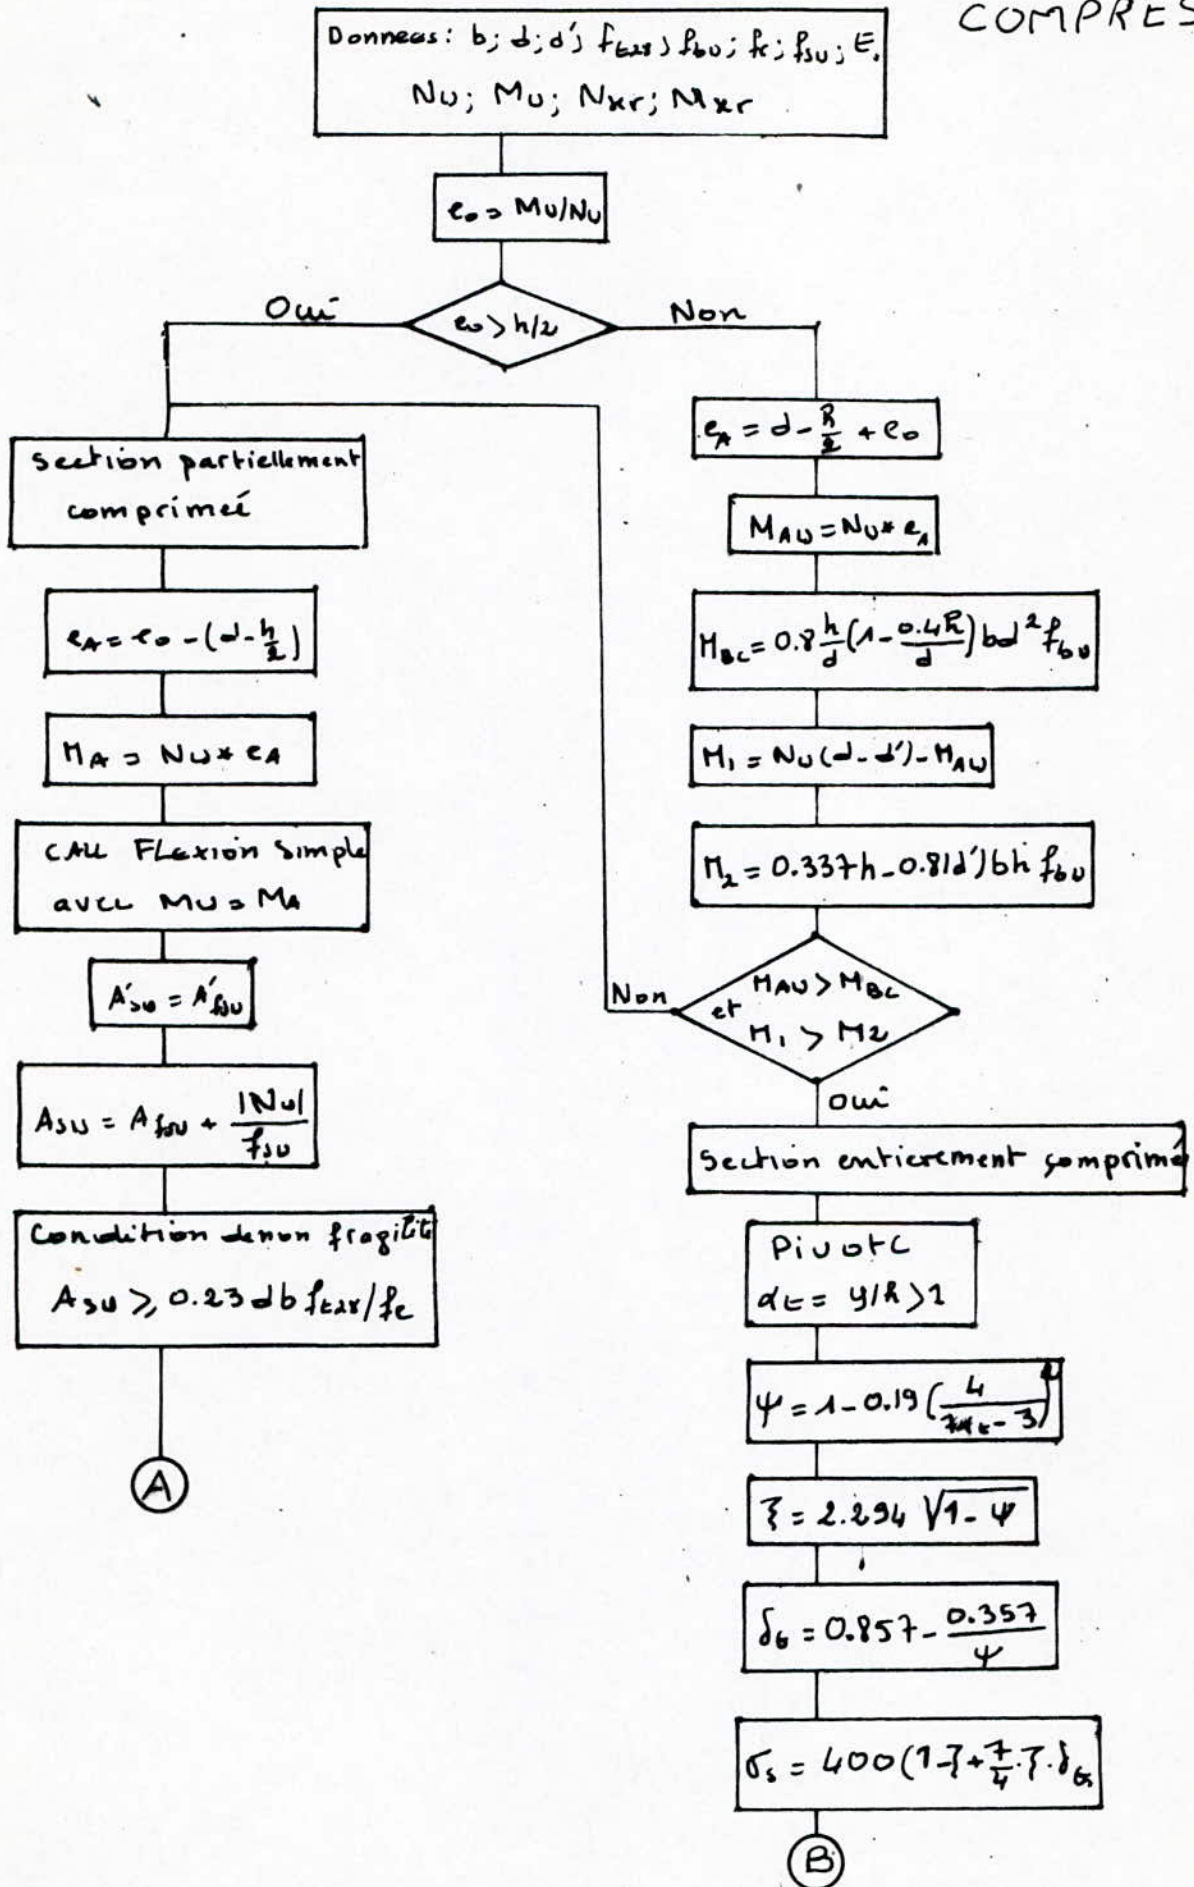 COMPRES
Données: b; d; d'; ft28; fbu; fe; fsu; E.
Nu; Mu; Nxr; Mxr
e₀ = Mu/Nu
Oui
e₀ > h/2
Non
Section partiellement
comprimeé
eA = e₀ - (d - h/2)
MA = Nu * eA
CALL FLexion Simple
avec Mu = MA
A'su = A'fsu
Asu = Afsu + |Nu|/fsu
Condition denon fragilité
Asu ≥ 0.23 db ft28/fe
A
eA = d - h/2 + e₀
MAU = Nu * eA
MBC = 0.8 h/d (1 - 0.4h/d) bd² fbu
M₁ = Nu (d - d') - MAU
M₂ = 0.337h - 0.81d') bh fbu
Non
MAU > MBC
et
M₁ > M2
oui
Section entierement comprimé
Pivot C
αt = y/h > 1
ψ = 1 - 0.19 (4/7αt - 3)²
ξ = 2.294 √1 - ψ
δG = 0.857 - 0.357/ψ
σs = 400 (1 - ξ + 7/4 . ξ . δG
B